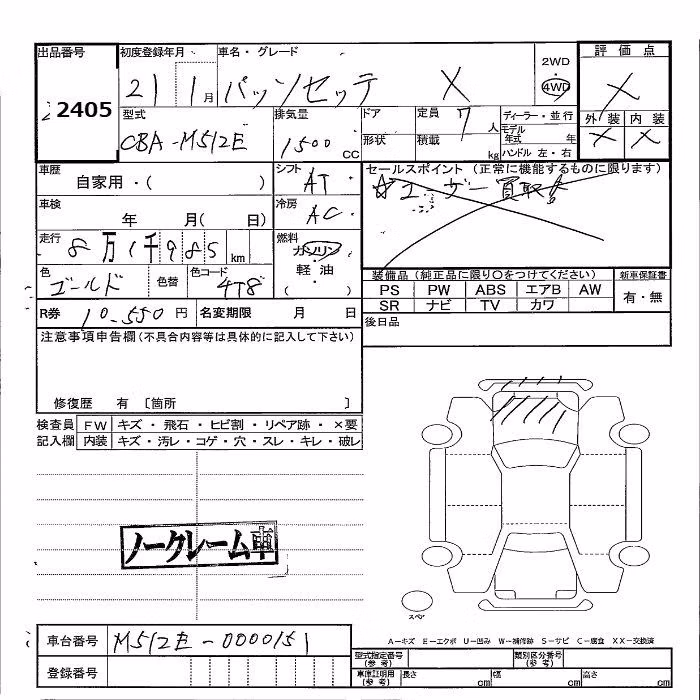 出品番号 初度登録年月 車名・グレード 2WD 4WD 評価点
2405 21 1月 パッソセッテ X X
型式 排気量 ドア 定員 7人 ディーラー・並行 外装 内装
CBA-M512E 1500cc 形状 積載 kg モデル年式 年 X X
ハンドル 左・右
車歴 シフト セールスポイント (正常に機能するものに限ります)
自家用・( ) AT ☆ユーザー買取!
車検 冷房
年 月( 日) AC
走行 燃料
8万1千985km ガソリン
色 色替 色コード 軽油 装備品 (純正品に限り○をつけてください) 新車保証書
ゴールド 4T8 ( ・ ) PS PW ABS エアB AW 有・無
SR ナビ TV カワ
R券 10,550円 名変期限 月 日 後日品
注意事項申告欄 (不具合内容等は具体的に記入して下さい)
修復歴 有 〔箇所 〕
検査員 FW キズ・飛石・ヒビ割・リペア跡・×要
記入欄 内装 キズ・汚レ・コゲ・穴・スレ・キレ・破レ
ノークレーム車
スペア
A−キズ E−エクボ U−凹み W−補修跡 S−サビ C−腐食 XX−交換済
車台番号 M512E-0000151
型式指定番号(参考) 類別区分番号(参考)
登録番号
車庫証明用(参考) 長さ cm 幅 cm 高さ cm